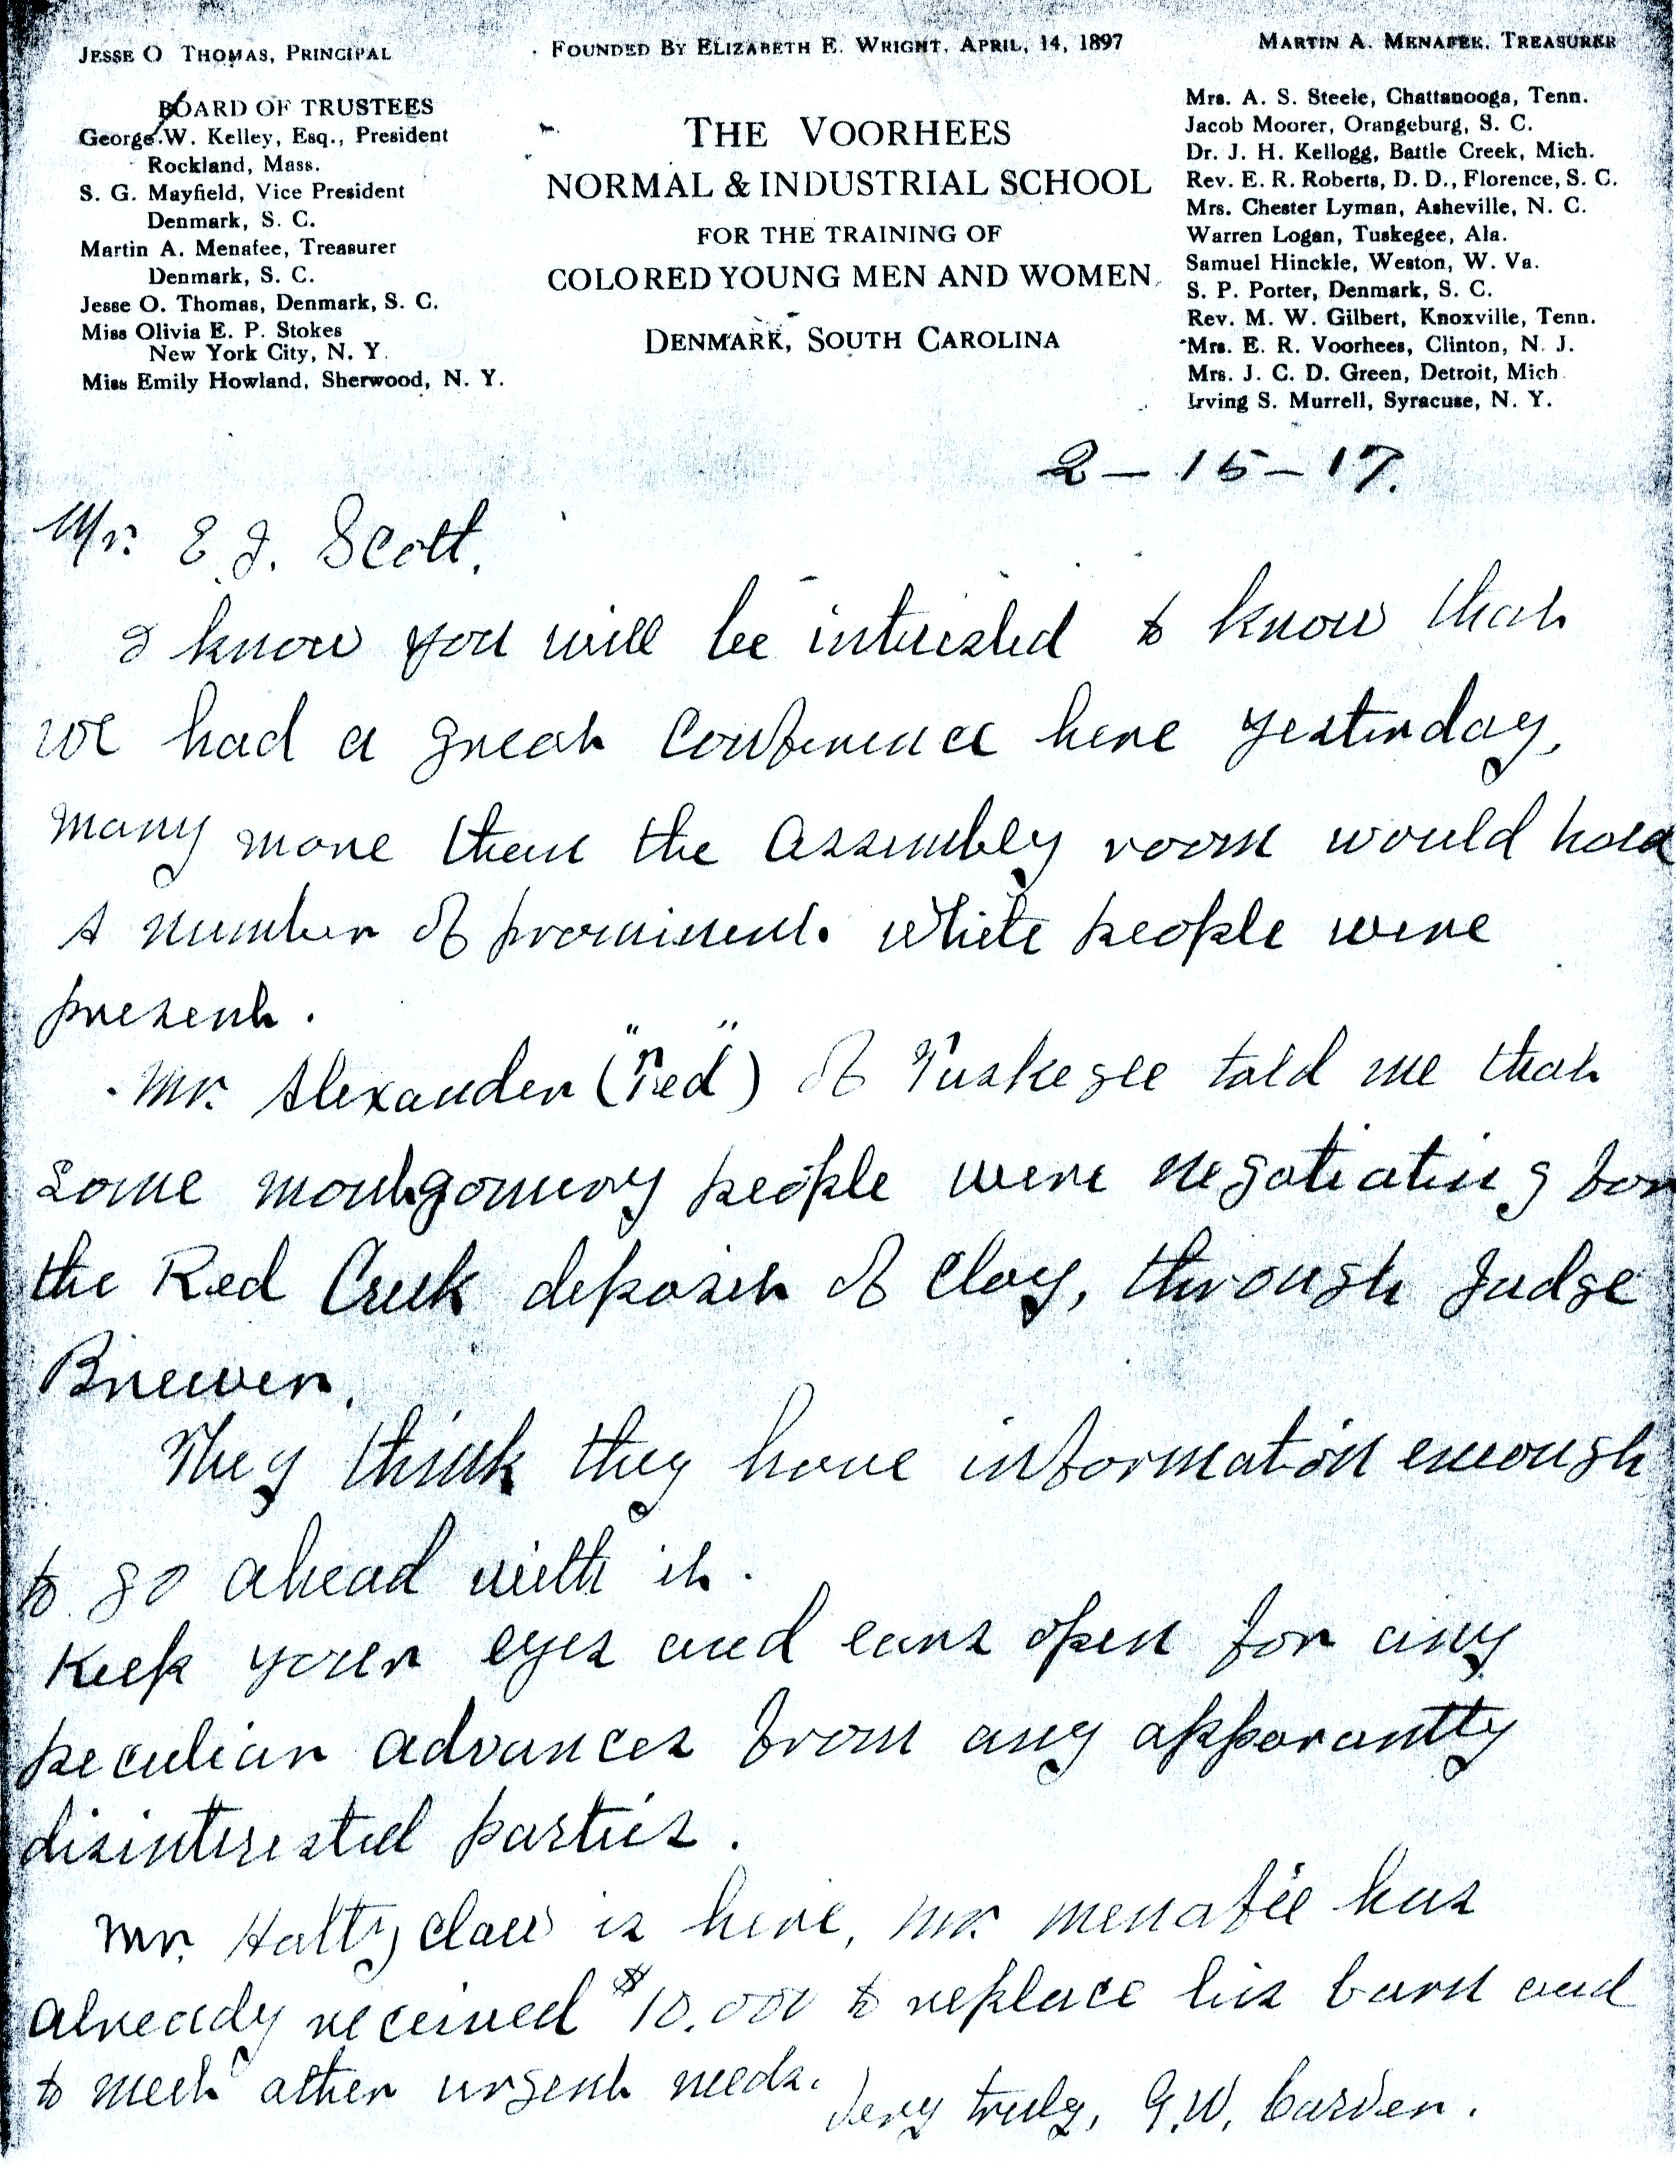 JESSE O THOMAS, PRINCIPAL
FOUNDED BY ELIZABETH E. WRIGHT, APRIL, 14, 1897
MARTIN A. MENAFEE, TREASURER
BOARD OF TRUSTEES
George W. Kelley, Esq., President
Rockland, Mass.
S. G. Mayfield, Vice President
Denmark, S. C.
Martin A. Menafee, Treasurer
Denmark, S. C.
Jesse O. Thomas, Denmark, S. C.
Miss Olivia E. P. Stokes
New York City, N. Y.
Miss Emily Howland, Sherwood, N. Y.
THE VOORHEES
NORMAL & INDUSTRIAL SCHOOL
FOR THE TRAINING OF
COLORED YOUNG MEN AND WOMEN
DENMARK, SOUTH CAROLINA
Mrs. A. S. Steele, Chattanooga, Tenn.
Jacob Moorer, Orangeburg, S. C.
Dr. J. H. Kellogg, Battle Creek, Mich.
Rev. E. R. Roberts, D. D., Florence, S. C.
Mrs. Chester Lyman, Asheville, N. C.
Warren Logan, Tuskegee, Ala.
Samuel Hinckle, Weston, W. Va.
S. P. Porter, Denmark, S. C.
Rev. M. W. Gilbert, Knoxville, Tenn.
Mrs. E. R. Voorhees, Clinton, N. J.
Mrs. J. C. D. Green, Detroit, Mich.
Irving S. Murrell, Syracuse, N. Y.
2-15-17.
Mr. E J. Scott.
I know you will be interested to know that
we had a great conference here yesterday,
many more than the assembly room would hold
A number of prominent. White people were
present.
Mr. Alexander ("red") of Tuskegee told me that
some montgomery people were negotiating for
the Red Creek deposit of clay, through Judge
Brewer.
They think they have information enough
to go ahead with it.
Keep your eyes and ears open for any
peculiar advances from any apparantty
disinterested parties.
Mr. Holtzclaw is here, Mr. Menafee has
already received $10.000 to replace his barn and
to meet other urgent needs.
Very truly, G.W. Carver.